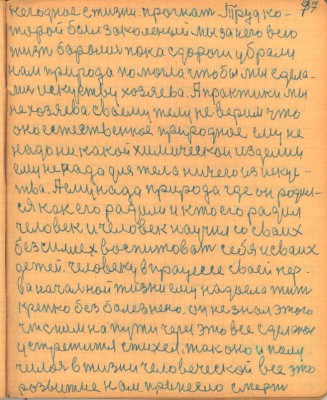 97
негодное с тизни. прогнат. Труд ко-
торой были законеной мы за него всю
тизт баролис пока сдороги убрали
нам природа помогла чтобы мы сдела-
лис искуству хозяева. А практики мы
не хозяева своему телу не верим что
оно естественное природное ему не
надо никакой химической изделии
ему не надо для тела ничего из искус-
тва. А ему надо природа где он родил-
ся как его радили и кто его радил
человек и человек научил со своих
безсилиех воспитоват себя и своих
детей. Человеку в працессе своей пер-
ваначалной тизни ему надоела тит
крепко без болезнено, он не знал этого
что с ним на пути через это все сделаное
устретится стихел, так оно и полу
чилося в тизни человеческой все это
розвитие нам принесло смерт